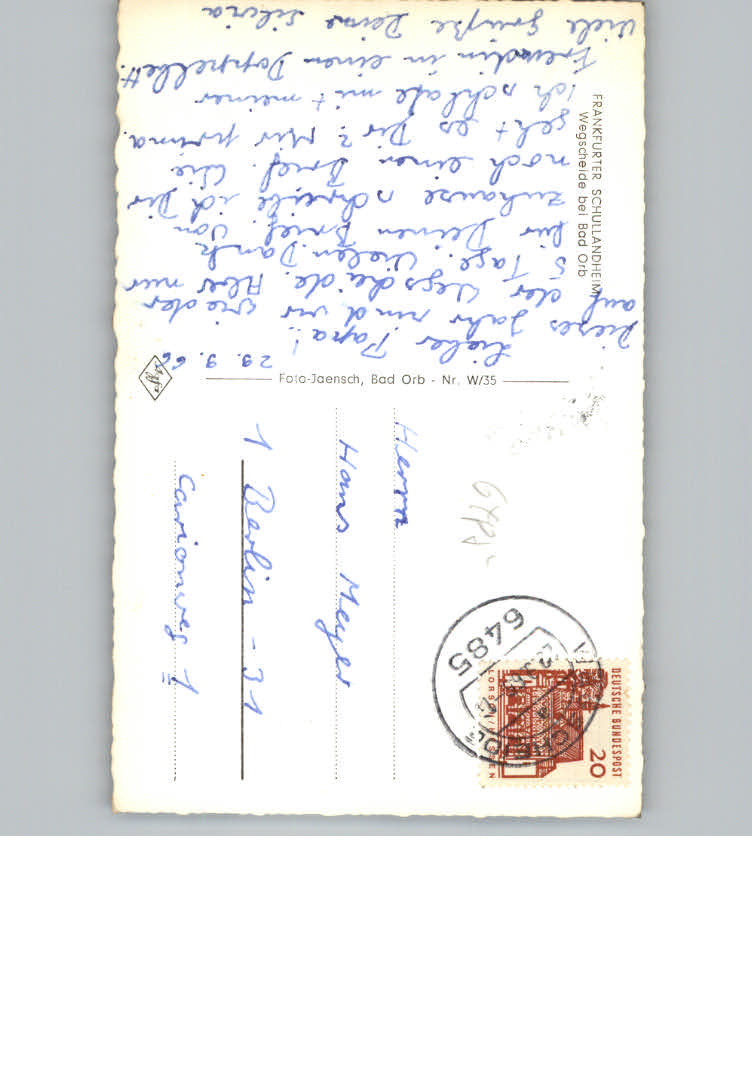 FRANKFURTER SCHULLANDHEIM
Wegscheide bei Bad Orb
29. 9. 66
Lieber Papa!
Dieses Jahr sind wir wieder
auf der Wegscheide. Aber nur
5 Tage. Vielen Dank
für Deinen Brief. Von
zuhause schreibe ich Dir
noch einen Brief. Wie
geht es Dir? Mir prima.
Ich schlafe mit meiner
Freundin in einen Doppelbett.
Viele Grüße Deine Silvia
Foto-Jaensch, Bad Orb - Nr. W/35
Herrn
Hans Meyer
1 Berlin - 31
Carionweg 1
6485
DEUTSCHE BUNDESPOST
20